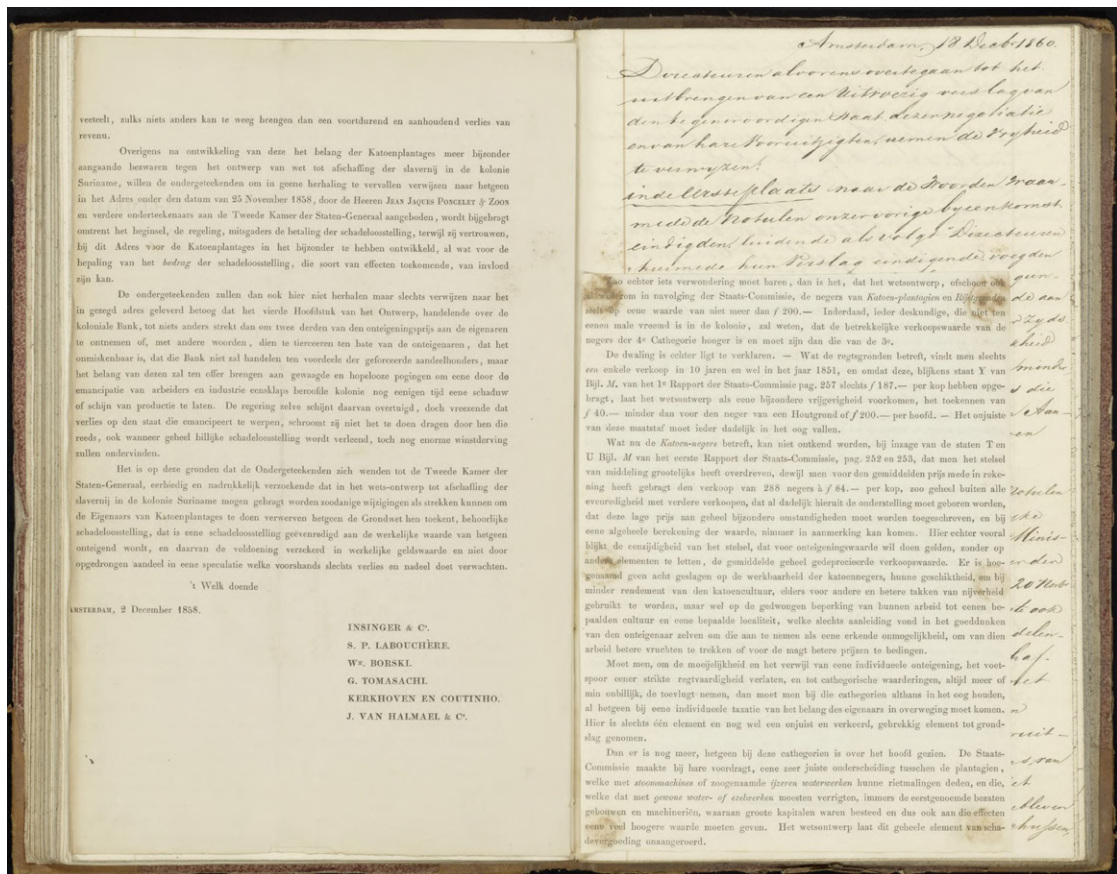 verteelt, zulks niets anders kan te weeg brengen dan een voortdurend en aanhoudend verlies van
revenu.
Overigens na ontwikkeling van deze het belang der Katoenplantages meer bijzonder
aangaande bezwaren tegen het ontwerp van wet tot afschaffing der slavernij in de kolonie
Suriname, willen de ondergeteekenden om in geene herhaling te vervallen verwijzen naar hetgeen
in het Adres onder den datum van 25 November 1858, door de Heeren JEAN JAQUES PONCELET & ZOON
en verdere onderteekenaars aan de Tweede Kamer der Staten-Generaal aangeboden, wordt bijgebragt
omtrent het beginsel, de regeling, mitsgaders de betaling der schadeloosstelling, terwijl zij vertrouwen,
bij dit Adres voor de Katoenplantages in het bijzonder te hebben ontwikkeld, al wat voor de
bepaling van het bedrag der schadeloosstelling, die soort van effecten toekomende, van invloed
zijn kan.
De ondergeteekenden zullen dan ook hier niet herhalen maar slechts verwijzen naar het
in gezegd adres geleverd betoog dat het vierde Hoofdstuk van het Ontwerp, handelende over de
koloniale Bank, tot niets anders strekt dan om twee derden van den onteigeningsprijs aan de eigenaren
te ontnemen of, met andere woorden, dien te tierceeren ten bate van de onteigenaren, dat het
onmiskenbaar is, dat die Bank niet zal handelen ten voordeele der geforceerde aandeelhouders, maar
het belang van dezen zal ten offer brengen aan gewaagde en hopelooze pogingen om eene door de
emancipatie van arbeiders en industrie eensklaps beroofde kolonie nog eenigen tijd eene schaduw
of schijn van productie te laten. De regering zelve schijnt daarvan overtuigd, doch vreezende dat
verlies op den staat die emancipeert te werpen, schroomt zij niet het te doen dragen door hen die
reeds, ook wanneer geheel billijke schadeloosstelling wordt verleend, toch nog enorme winstderving
zullen ondervinden.
Het is op deze gronden dat de Ondergeteekenden zich wenden tot de Tweede Kamer der
Staten-Generaal, eerbiedig en nadrukkelijk verzoekende dat in het wets-ontwerp tot afschaffing der
slavernij in de kolonie Suriname mogen gebragt worden zoodanige wijzigingen als strekken kunnen om
de Eigenaars van Katoenplantages te doen verwerven hetgeen de Grondwet hen toekent, behoorlijke
schadeloosstelling, dat is eene schadeloosstelling geëvenredigd aan de werkelijke waarde van hetgeen
onteigend wordt, en daarvan de voldoening verzekerd in werkelijke geldswaarde en niet door
opgedrongen aandeel in eene speculatie welke voorshands slechts verlies en nadeel doet verwachten.
't Welk doende
AMSTERDAM, 2 December 1858.
INSINGER & Co.
S. P. LABOUCHÈRE.
Wm. BORSKI.
G. TOMASACHI.
KERKHOVEN EN COUTINHO.
J. VAN HALMAEL & Co.
Amsterdam, 18 Decbr 1860.
Directeuren alvorens overtegaan tot het
uitbrengen van een Uitvoerig verslag van
den tegenwoordigen Staat dezer negotiatie
en van hare Vooruitzigten, nemen de Vryheid
te verwyzen:
in de eerste plaats naar de Woorden waar-
mede de Notulen onzer vorige byeenkomst
eindigden, luidende als volgt "Directeuren
hiermede hun Verslag eindigende, voegden
Zoo echter iets verwondering moet baren, dan is het, dat het wetsontwerp, ofschoon ook
in navolging der Staats-Commissie, de negers van Katoen-plantagien en Rijstgronden
stelt op eene waarde van niet meer dan f 200.— Inderdaad, ieder deskundige, die niet ten
eenen male vreemd is in de kolonie, zal weten, dat de betrekkelijke verkoopswaarde van de
negers der 4e Cathegorie hooger is en moet zijn dan die van de 3e.
De dwaling is echter ligt te verklaren. — Wat de rijstgronden betreft, vindt men slechts
een enkele verkoop in 10 jaren en wel in het jaar 1851, en omdat deze, blijkens staat Y van
Bijl. M. van het 1e Rapport der Staats-Commissie pag. 257 slechts f 187.— per kop hebben opge-
bragt, laat het wetsontwerp als eene bijzondere vrijgevigheid voorkomen, het toekennen van
f 40.— minder dan voor den neger van een Houtgrond of f 200.— per hoofd. — Het onjuiste
van deze maatstaf moet ieder dadelijk in het oog vallen.
Wat nu de Katoen-negers betreft, kan niet ontkend worden, bij inzage van de staten T en
U Bijl. M van het eerste Rapport der Staats-Commissie, pag. 252 en 253, dat men het stelsel
van middeling grootelijks heeft overdreven, dewijl men voor den gemiddelden prijs mede in reke-
ning heeft gebragt den verkoop van 288 negers à f 84.— per kop, zoo geheel buiten alle
evenredigheid met verdere verkoopen, dat al dadelijk hieruit de onderstelling moet geboren worden,
dat deze lage prijs aan geheel bijzondere omstandigheden moet worden toegeschreven, en bij
eene algeheele berekening der waarde, nimmer in aanmerking kan komen. Hier echter vooral
blijkt de eenzijdigheid van het stelsel, dat voor onteigeningswaarde wil doen gelden, zonder op
andere elementen te letten, de gemiddelde geheel gedeprecieerde verkoopswaarde. Er is hoe-
genaamd geen acht geslagen op de werkbaarheid der katoennegers, hunne geschiktheid, om bij
minder rendement van den katoencultuur, elders voor andere en betere takken van nijverheid
gebruikt te worden, maar wel op de gedwongen beperking van hunnen arbeid tot eenen be-
paalden cultuur en eene bepaalde localiteit, welke slechts aanleiding vond in het goeddunken
van den onteigenaar zelven om die aan te nemen als eene erkende onmogelijkheid, om van dien
arbeid betere vruchten te trekken of voor de magt betere prijzen te bedingen.
Moet men, om de moeijelijkheid en het verwijl van eene individueele onteigening, het voet-
spoor eener strikte regtvaardigheid verlaten, en tot cathegorische waarderingen, altijd meer of
min onbillijk, de toevlugt nemen, dan moet men bij die cathegorien althans in het oog houden,
al hetgeen bij eene individueele taxatie van het belang des eigenaars in overweging moet komen.
Hier is slechts één element en nog wel een onjuist en verkeerd, gebrekkig element tot grond-
slag genomen.
Dan er is nog meer, hetgeen bij deze cathegorien is over het hoofd gezien. De Staats-
Commissie maakte bij hare voordragt, eene zeer juiste onderscheiding tusschen de plantagien,
welke met stoommachines of zoogenaamde ijzeren waterwerken hunne rietmalingen deden, en die,
welke dat met gewone water- of ezelwerken moesten verrigten, immers de eerstgenoemde bezaten
gebouwen en machineriën, waaraan groote kapitalen waren besteed en dus ook aan die effecten
eene veel hoogere waarde moeten geven. Het wetsontwerp laat dit geheele element van scha-
devergoeding onaangeroerd.